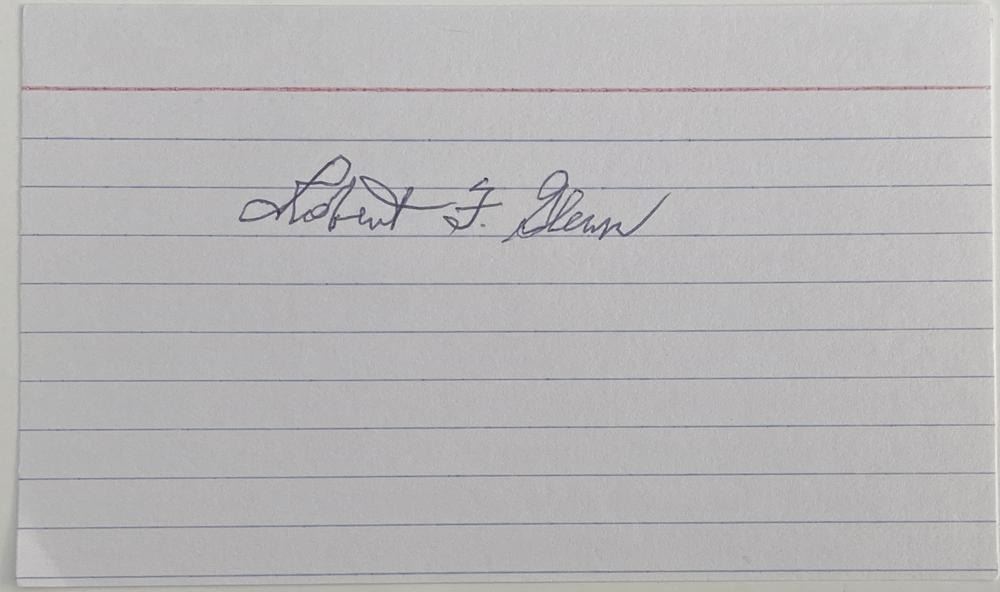 Robert F. Glenn